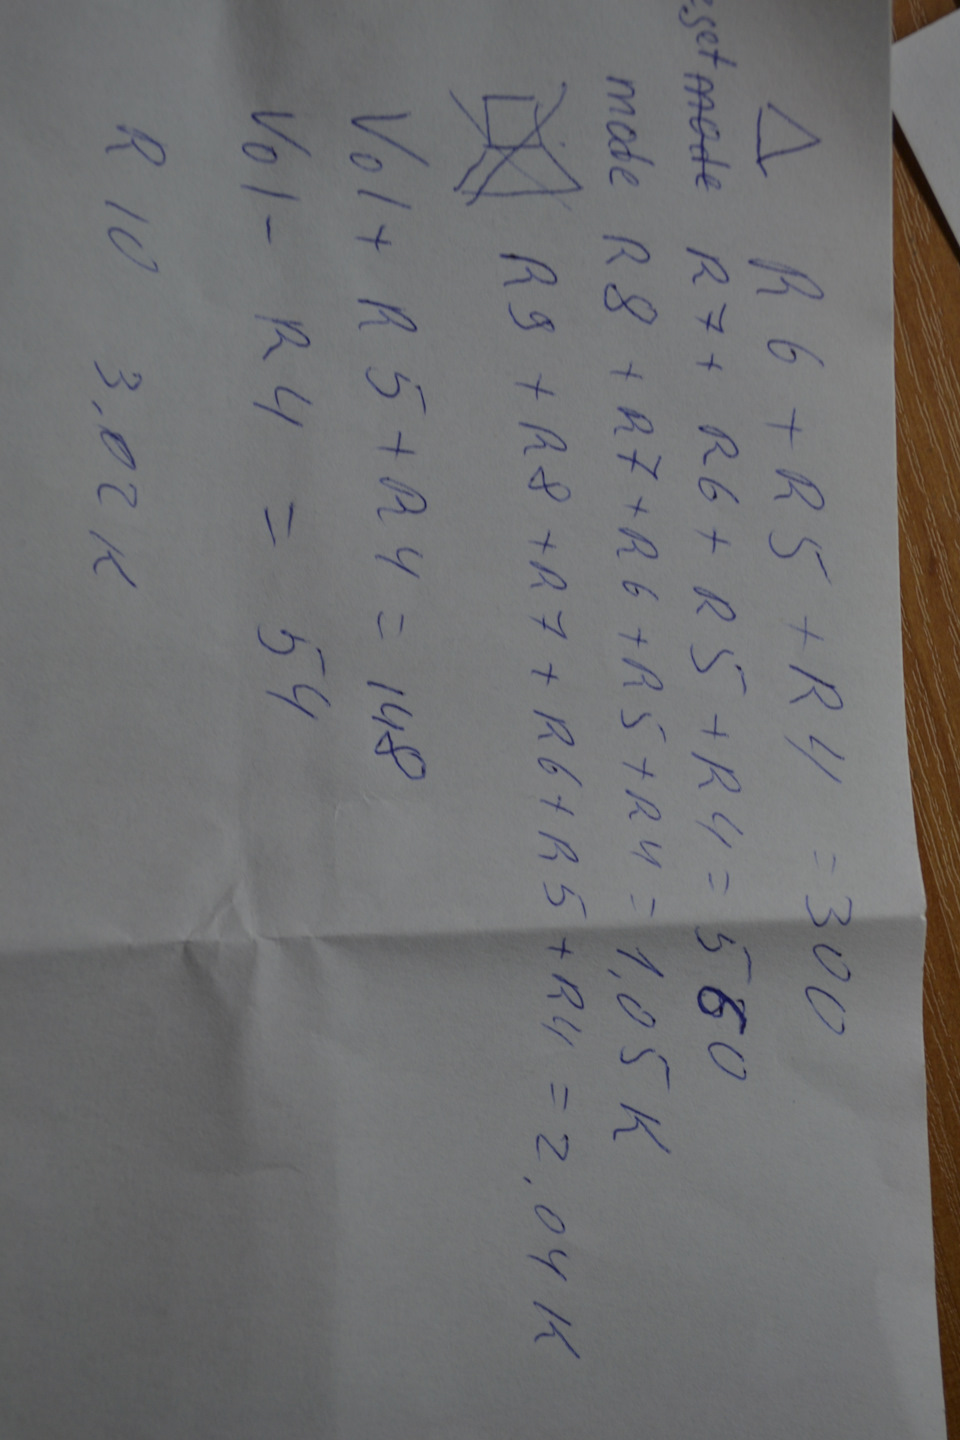 △ R6 + R5 + R4 = 300
R7 + R6 + R5 + R4 = 560
mode R8 + R7 + R6 + R5 + R4 = 1,05K
R9 + R8 + R7 + R6 + R5 + R4 = 2,04K
Vol + R5 + R4 = 148
Vol - R4 = 54
R10 3,02K